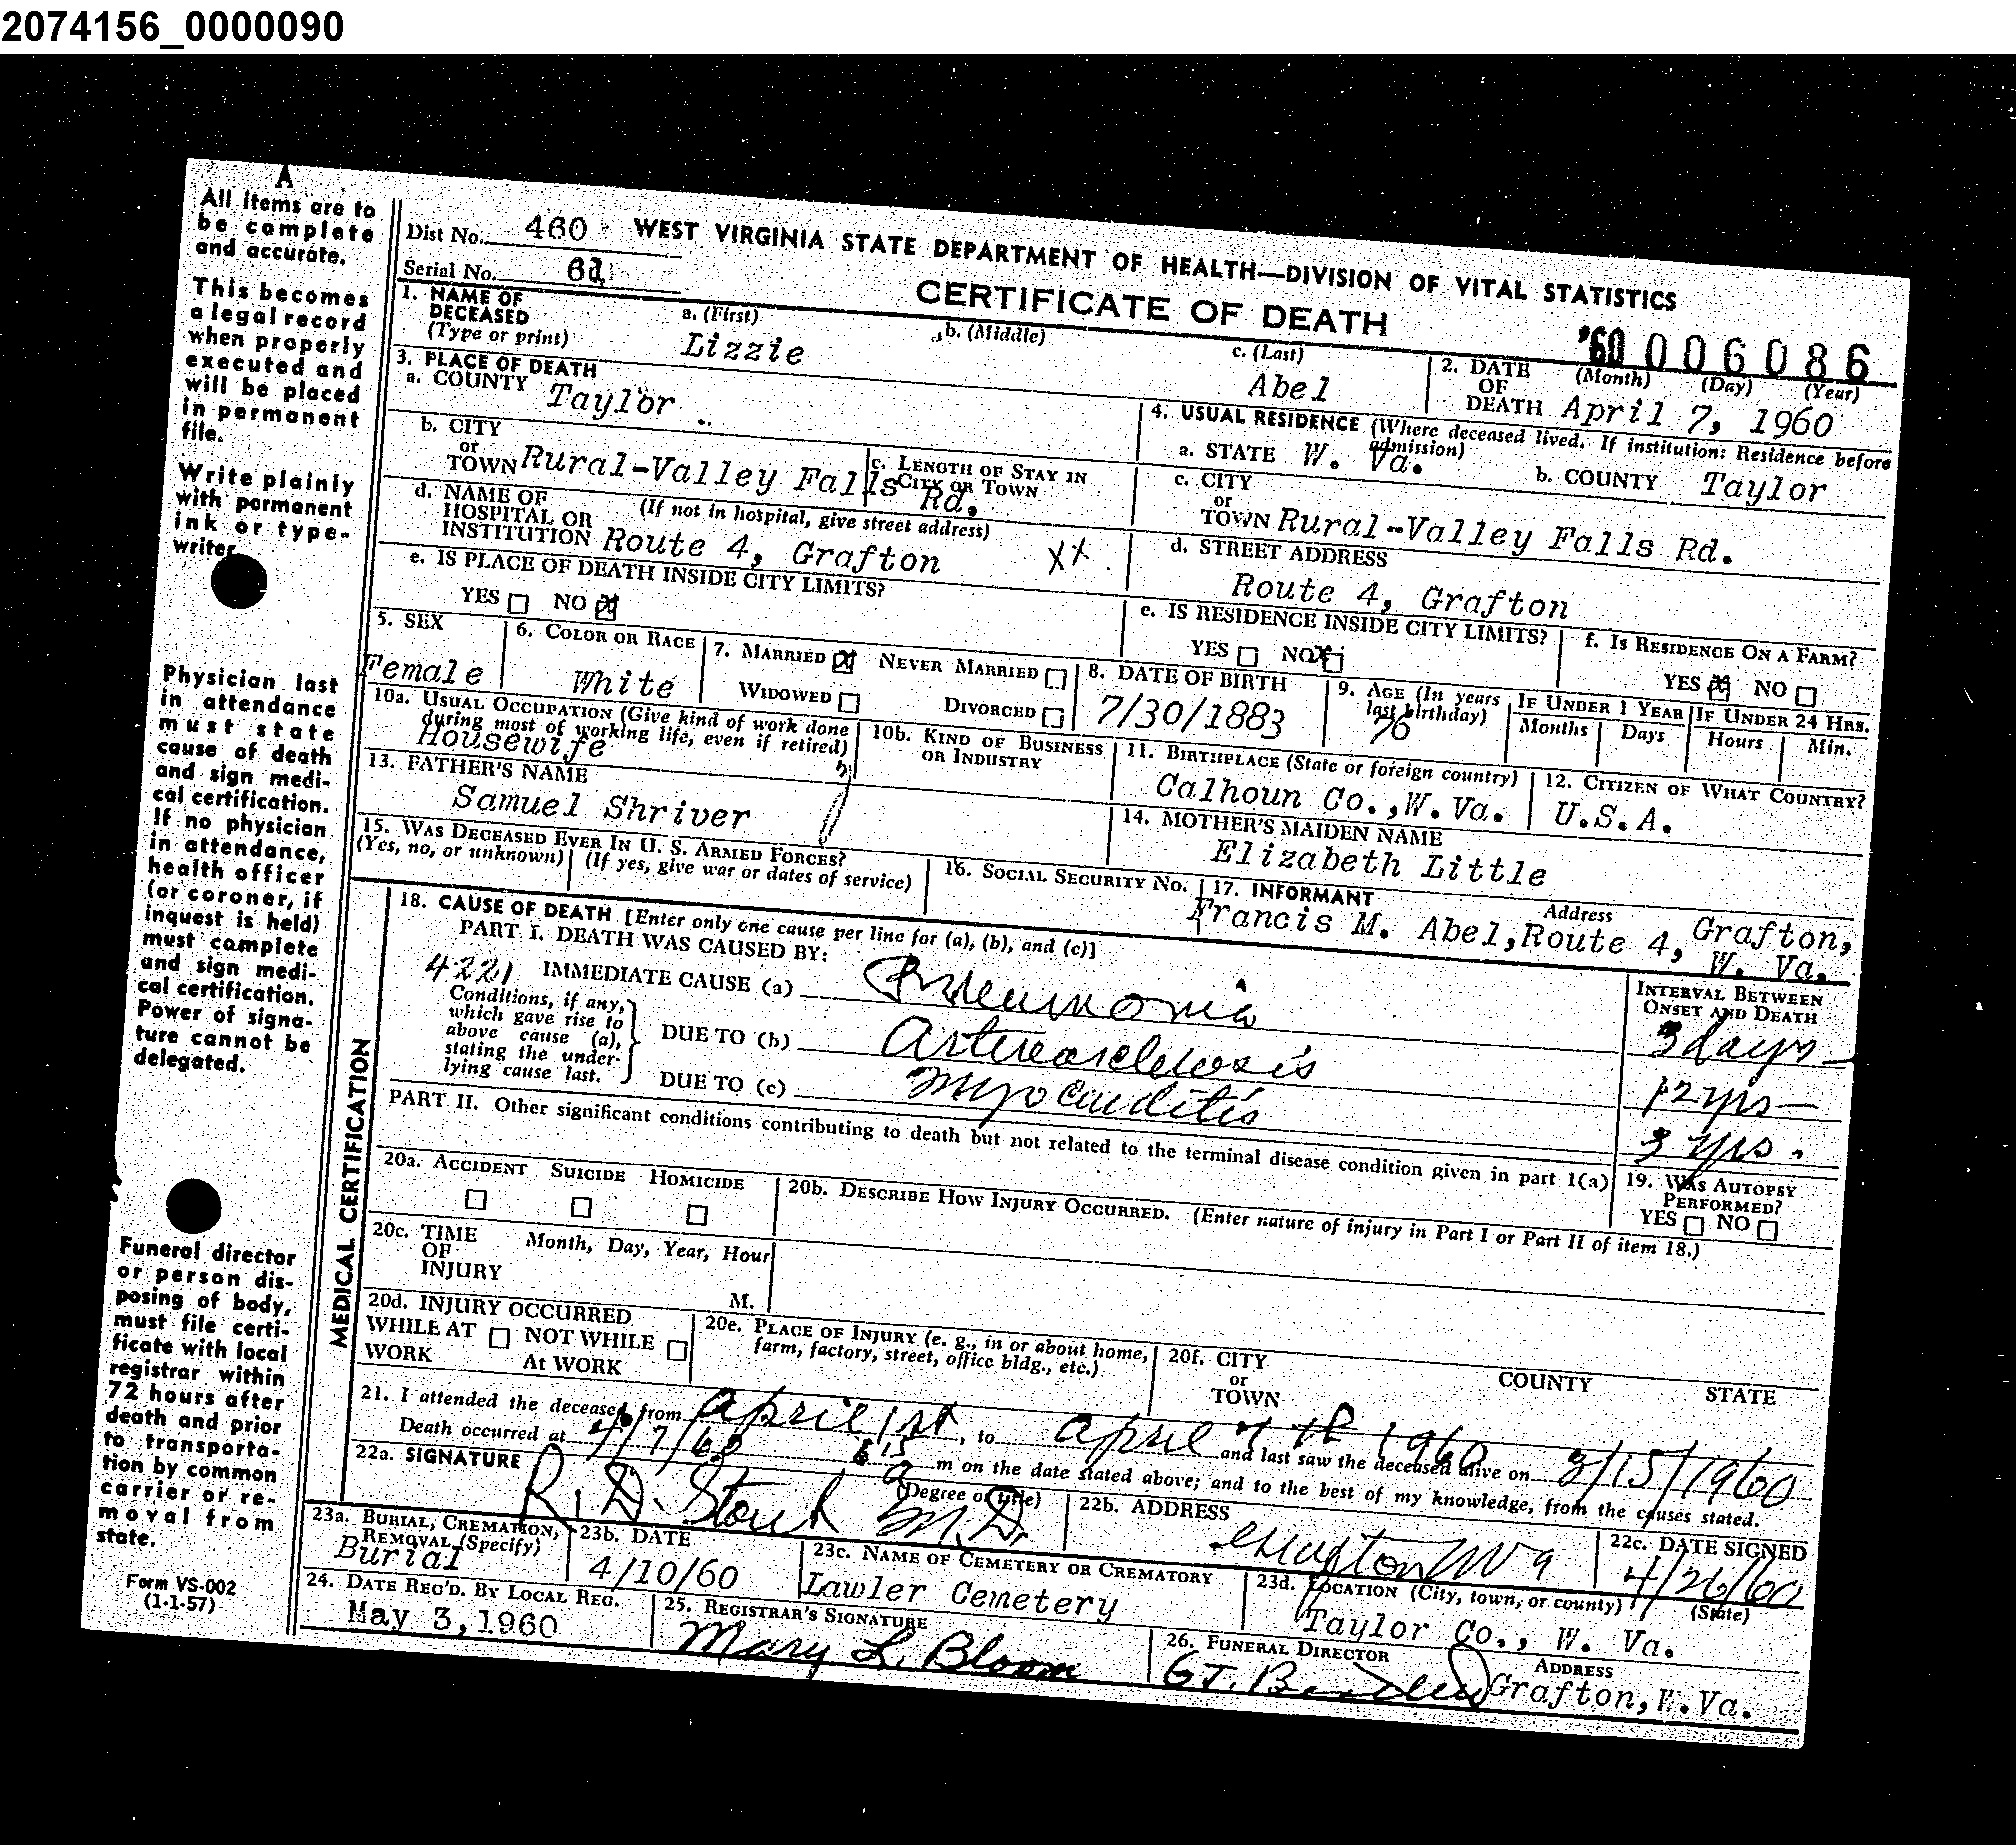 2074156_0000090
A
All items are to
be complete
and accurate.
This becomes
a legal record
when properly
executed and
will be placed
in permanent
file.
Write plainly
with permanent
ink or type-
writer
Physician last
in attendance
must state
cause of death
and sign medi-
cal certification.
If no physician
in attendance,
health officer
(or coroner, if
inquest is held)
must complete
and sign medi-
cal certification.
Power of signa-
ture cannot be
delegated.
Funeral director
or person dis-
posing of body,
must file certi-
ficate with local
registrar within
72 hours after
death and prior
to transporta-
tion by common
carrier or re-
moval from
state.
Form VS-002
(1-1-57)
Dist No. 460 WEST VIRGINIA STATE DEPARTMENT OF HEALTH—DIVISION OF VITAL STATISTICS
Serial No.
CERTIFICATE OF DEATH
'60 006086
1. NAME OF DECEASED (Type or print)
a. (First) Lizzie
b. (Middle)
c. (Last) Abel
2. DATE OF DEATH (Month) (Day) (Year) April 7, 1960
3. PLACE OF DEATH
a. COUNTY Taylor
b. CITY or TOWN Rural-Valley Falls Rd.
c. LENGTH OF STAY IN CITY OR TOWN
d. NAME OF HOSPITAL OR INSTITUTION (If not in hospital, give street address) Route 4, Grafton XX
e. IS PLACE OF DEATH INSIDE CITY LIMITS?
YES NO X
4. USUAL RESIDENCE (Where deceased lived. If institution: Residence before admission)
a. STATE W. Va.
b. COUNTY Taylor
c. CITY or TOWN Rural-Valley Falls Rd.
d. STREET ADDRESS
Route 4, Grafton
e. IS RESIDENCE INSIDE CITY LIMITS?
YES NO X
f. IS RESIDENCE ON A FARM?
YES X NO
5. SEX Female
6. COLOR OR RACE White
7. MARRIED X NEVER MARRIED
WIDOWED DIVORCED
8. DATE OF BIRTH 7/30/1883
9. AGE (In years last birthday) 76
IF UNDER 1 YEAR Months Days
IF UNDER 24 HRS. Hours Min.
10a. USUAL OCCUPATION (Give kind of work done during most of working life, even if retired) Housewife
10b. KIND OF BUSINESS OR INDUSTRY
11. BIRTHPLACE (State or foreign country) Calhoun Co., W. Va.
12. CITIZEN OF WHAT COUNTRY? U.S.A.
13. FATHER'S NAME
Samuel Shriver
14. MOTHER'S MAIDEN NAME
Elizabeth Little
15. WAS DECEASED EVER IN U. S. ARMED FORCES?
(Yes, no, or unknown) (If yes, give war or dates of service)
16. SOCIAL SECURITY NO.
17. INFORMANT Address
Francis M. Abel, Route 4, Grafton, W. Va.
MEDICAL CERTIFICATION
18. CAUSE OF DEATH [Enter only one cause per line for (a), (b), and (c)]
PART I. DEATH WAS CAUSED BY:
INTERVAL BETWEEN ONSET AND DEATH
4221 IMMEDIATE CAUSE (a) Pneumonia 3 days
Conditions, if any, which gave rise to above cause (a), stating the under-lying cause last.
DUE TO (b) Arteriosclerosis 12 yrs
DUE TO (c) Myocarditis 3 yrs.
PART II. Other significant conditions contributing to death but not related to the terminal disease condition given in part 1(a)
19. WAS AUTOPSY PERFORMED?
YES NO
20a. ACCIDENT SUICIDE HOMICIDE
20b. DESCRIBE HOW INJURY OCCURRED. (Enter nature of injury in Part I or Part II of item 18.)
20c. TIME OF INJURY Month, Day, Year, Hour
M.
20d. INJURY OCCURRED
WHILE AT WORK NOT WHILE At WORK
20e. PLACE OF INJURY (e. g., in or about home, farm, factory, street, office bldg., etc.)
20f. CITY or TOWN COUNTY STATE
21. I attended the deceased from April 1st, to April 7th 1960 and last saw the deceased alive on 3/15/1960
Death occurred at 4/7/60 a m on the date stated above; and to the best of my knowledge, from the causes stated.
22a. SIGNATURE (Degree or title) R. D. Stout M.D.
22b. ADDRESS Grafton W Va
22c. DATE SIGNED 4/26/60
23a. BURIAL, CREMATION, REMOVAL (Specify) Burial
23b. DATE 4/10/60
23c. NAME OF CEMETERY OR CREMATORY Lawler Cemetery
23d. LOCATION (City, town, or county) (State) Taylor Co., W. Va.
24. DATE REC'D. BY LOCAL REG. May 3, 1960
25. REGISTRAR'S SIGNATURE Mary L. Bloom
26. FUNERAL DIRECTOR ADDRESS Grafton, W. Va.